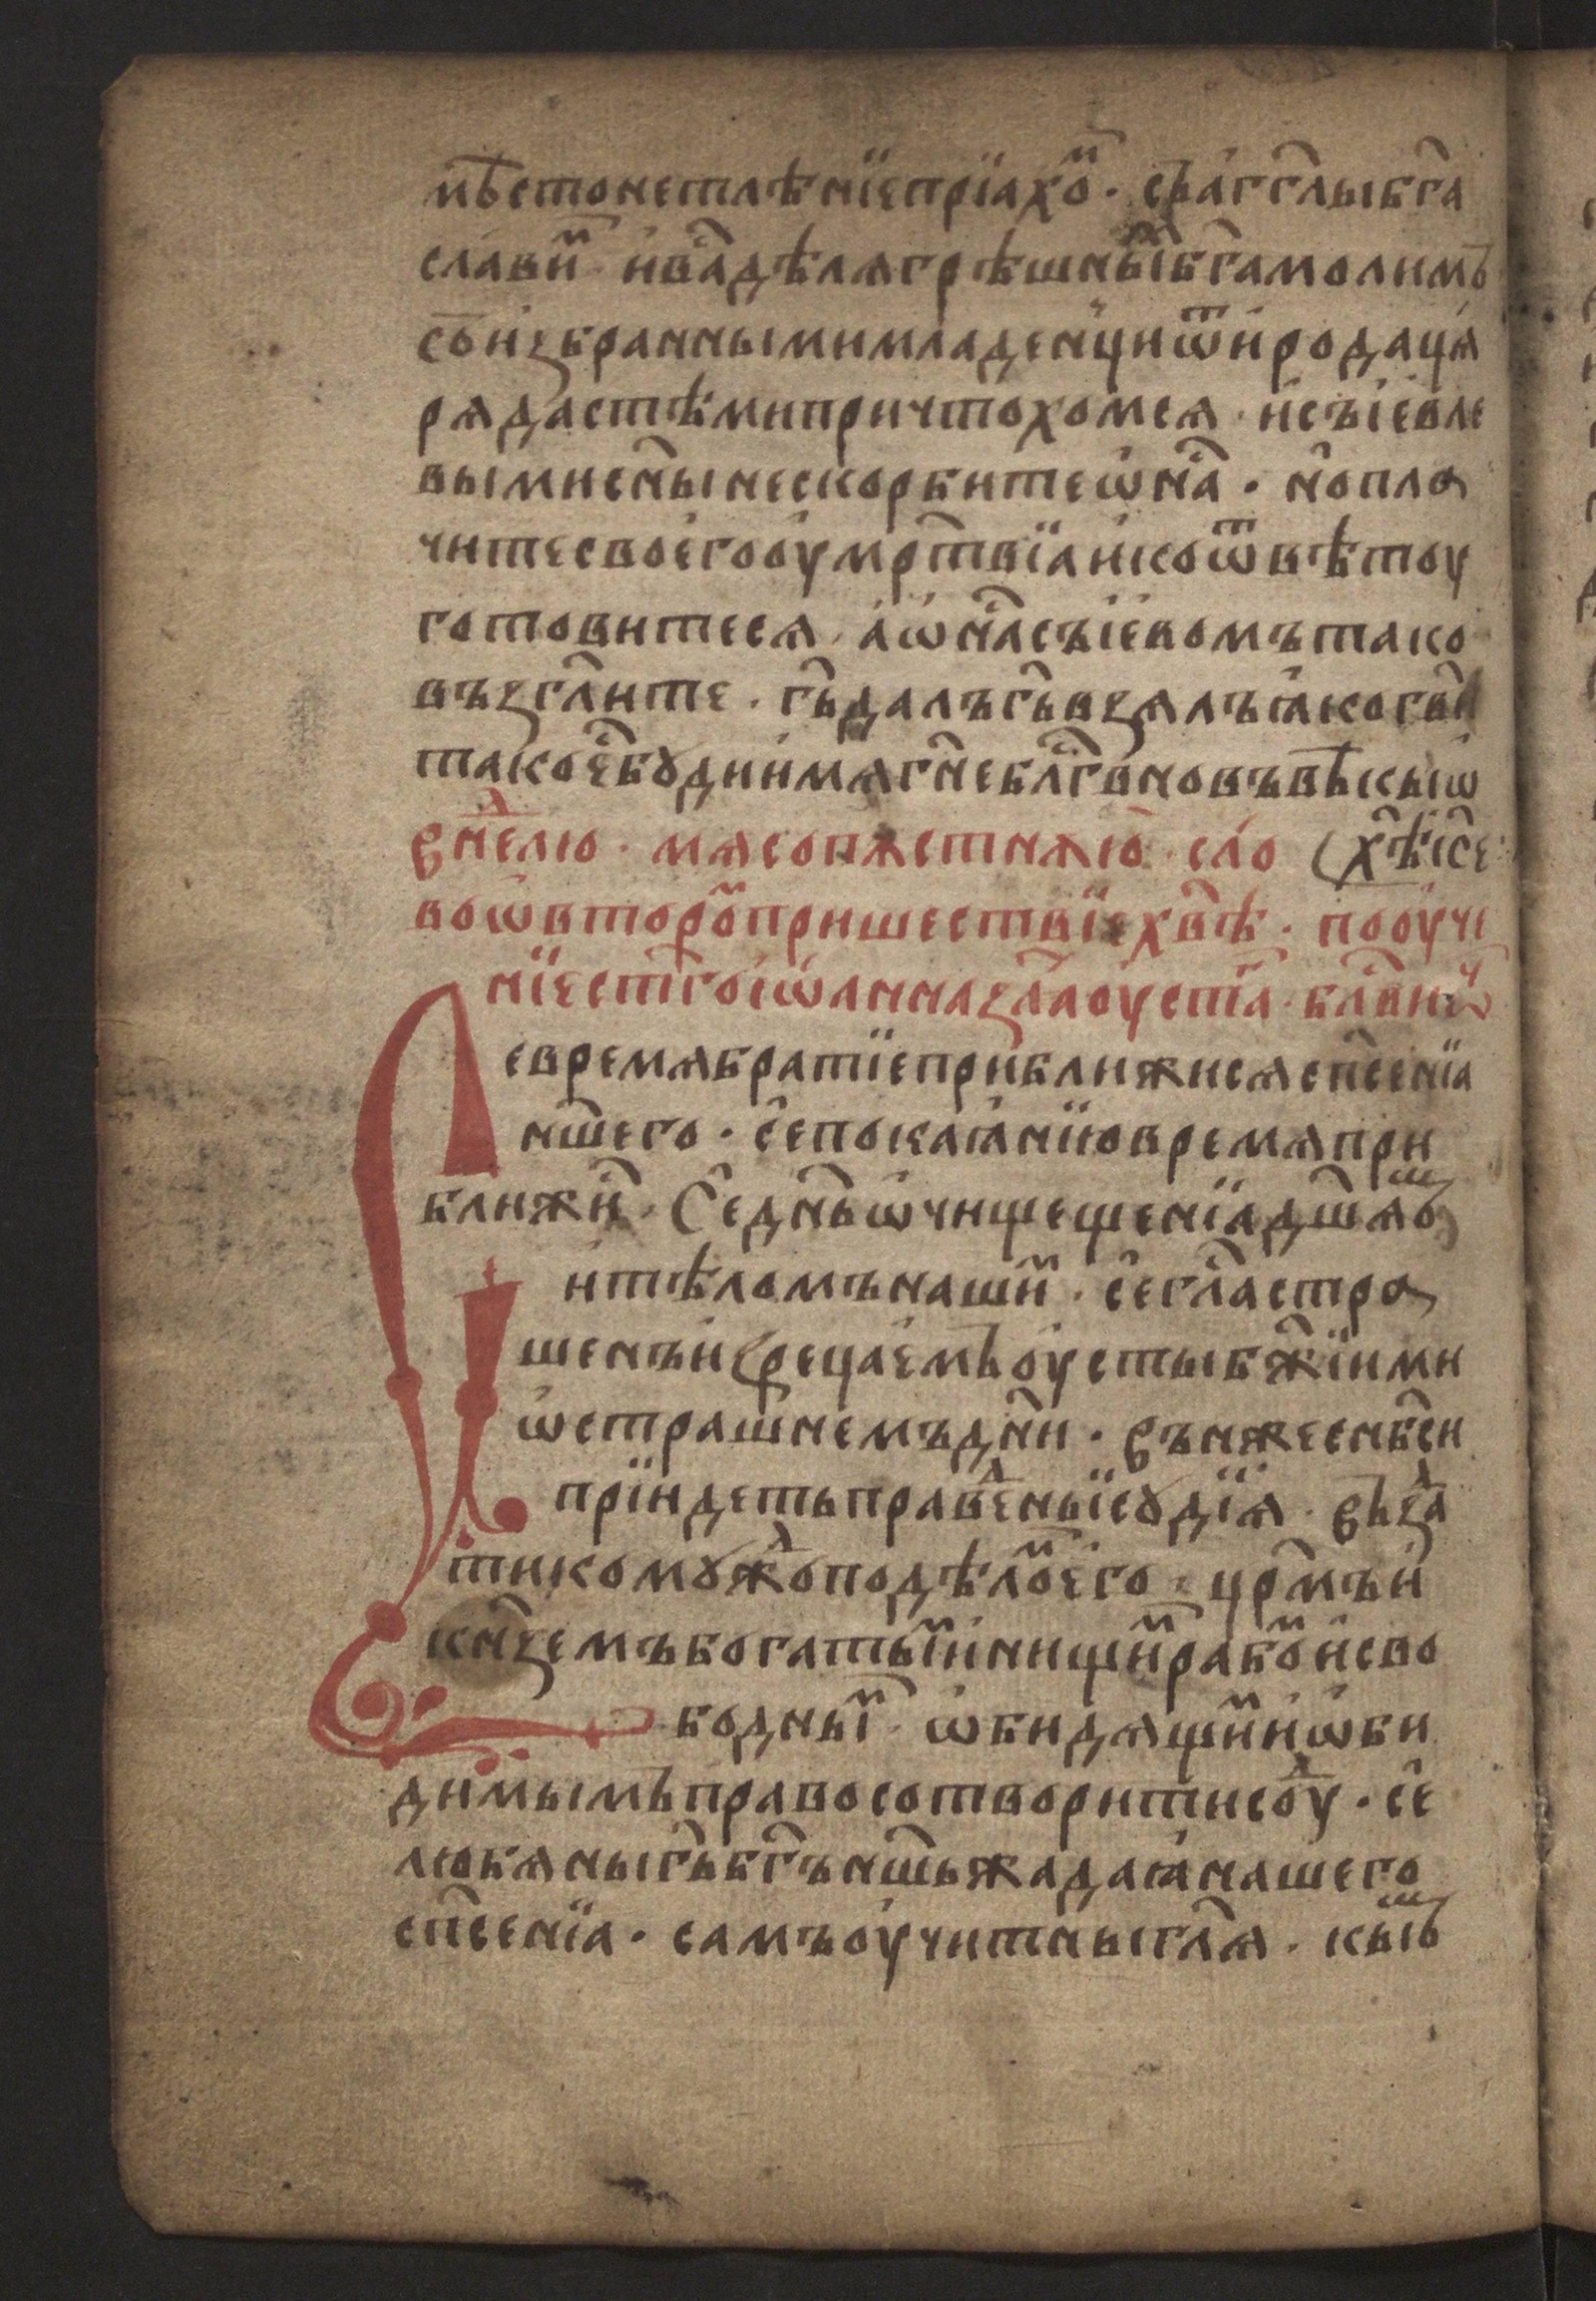 мѣстонетлѣнїепрїахѡⷨ · съаг҃г҃лыбг҃а
славиⷨ · ивⷭ҇адѣлѧгрѣшныⷯбг҃амолимъ
соизбраннымимладенциѿиродацѧ
рѧдастѣмипричтохомсѧ · исъіевле
вымисн҃ынескорбитеѡнⷭ҇а · нопла
читесвоегооумрт҃вїаикоѿвѣтоу
готовитесѧ · аѡнⷭ҇асъіевомътако
възгл҃ите · гь҃далъгь҃взѧлъꙗкогв҃и
такоеⷭ҇бꙋдиимѧгн҃еблг҃внвовъвѣкыѡ
внⷣелю · мѧсопѫстнѫю · сло (хѣ҃іс҃е
воѡвторⷨопришествїехв҃ѣ · пооуче
нїест҃гоіѡаннаꙁлⷮаоустⷭ҇а · блⷭ҇виѡⷱ
Севремѧбратїеприближисѧсп҃сенїа
нш҃его · сепокаꙗнїювремѧпри
ближиⷭ҇ · Седн҃ьѡчищещенїадш҃ѧⷨъ
итѣломънашиⷨ · сегл҃астра
шенъиꙁрецаемъоустыбж҃їими
ѡстрашнемъдн҃и · вънжеснб҃си
прїидетьправⷣеныїсꙋдїѧ · въꙁⷣа
тикомꙋжⷣоподѣлⷨоего · цр҃мъи
кн҃ꙁемъбогатыⷨинищиⷨрабоⷨисво
бодныⷨ · ѡбидѧщиⷨиѡби
димымъправосотворитисⷣоу · се
любѧныгь҃бг҃ънш҃ьжадаꙗнашего
сп҃сенїа · самъоучитныгл҃ѧ · кыⷨъ